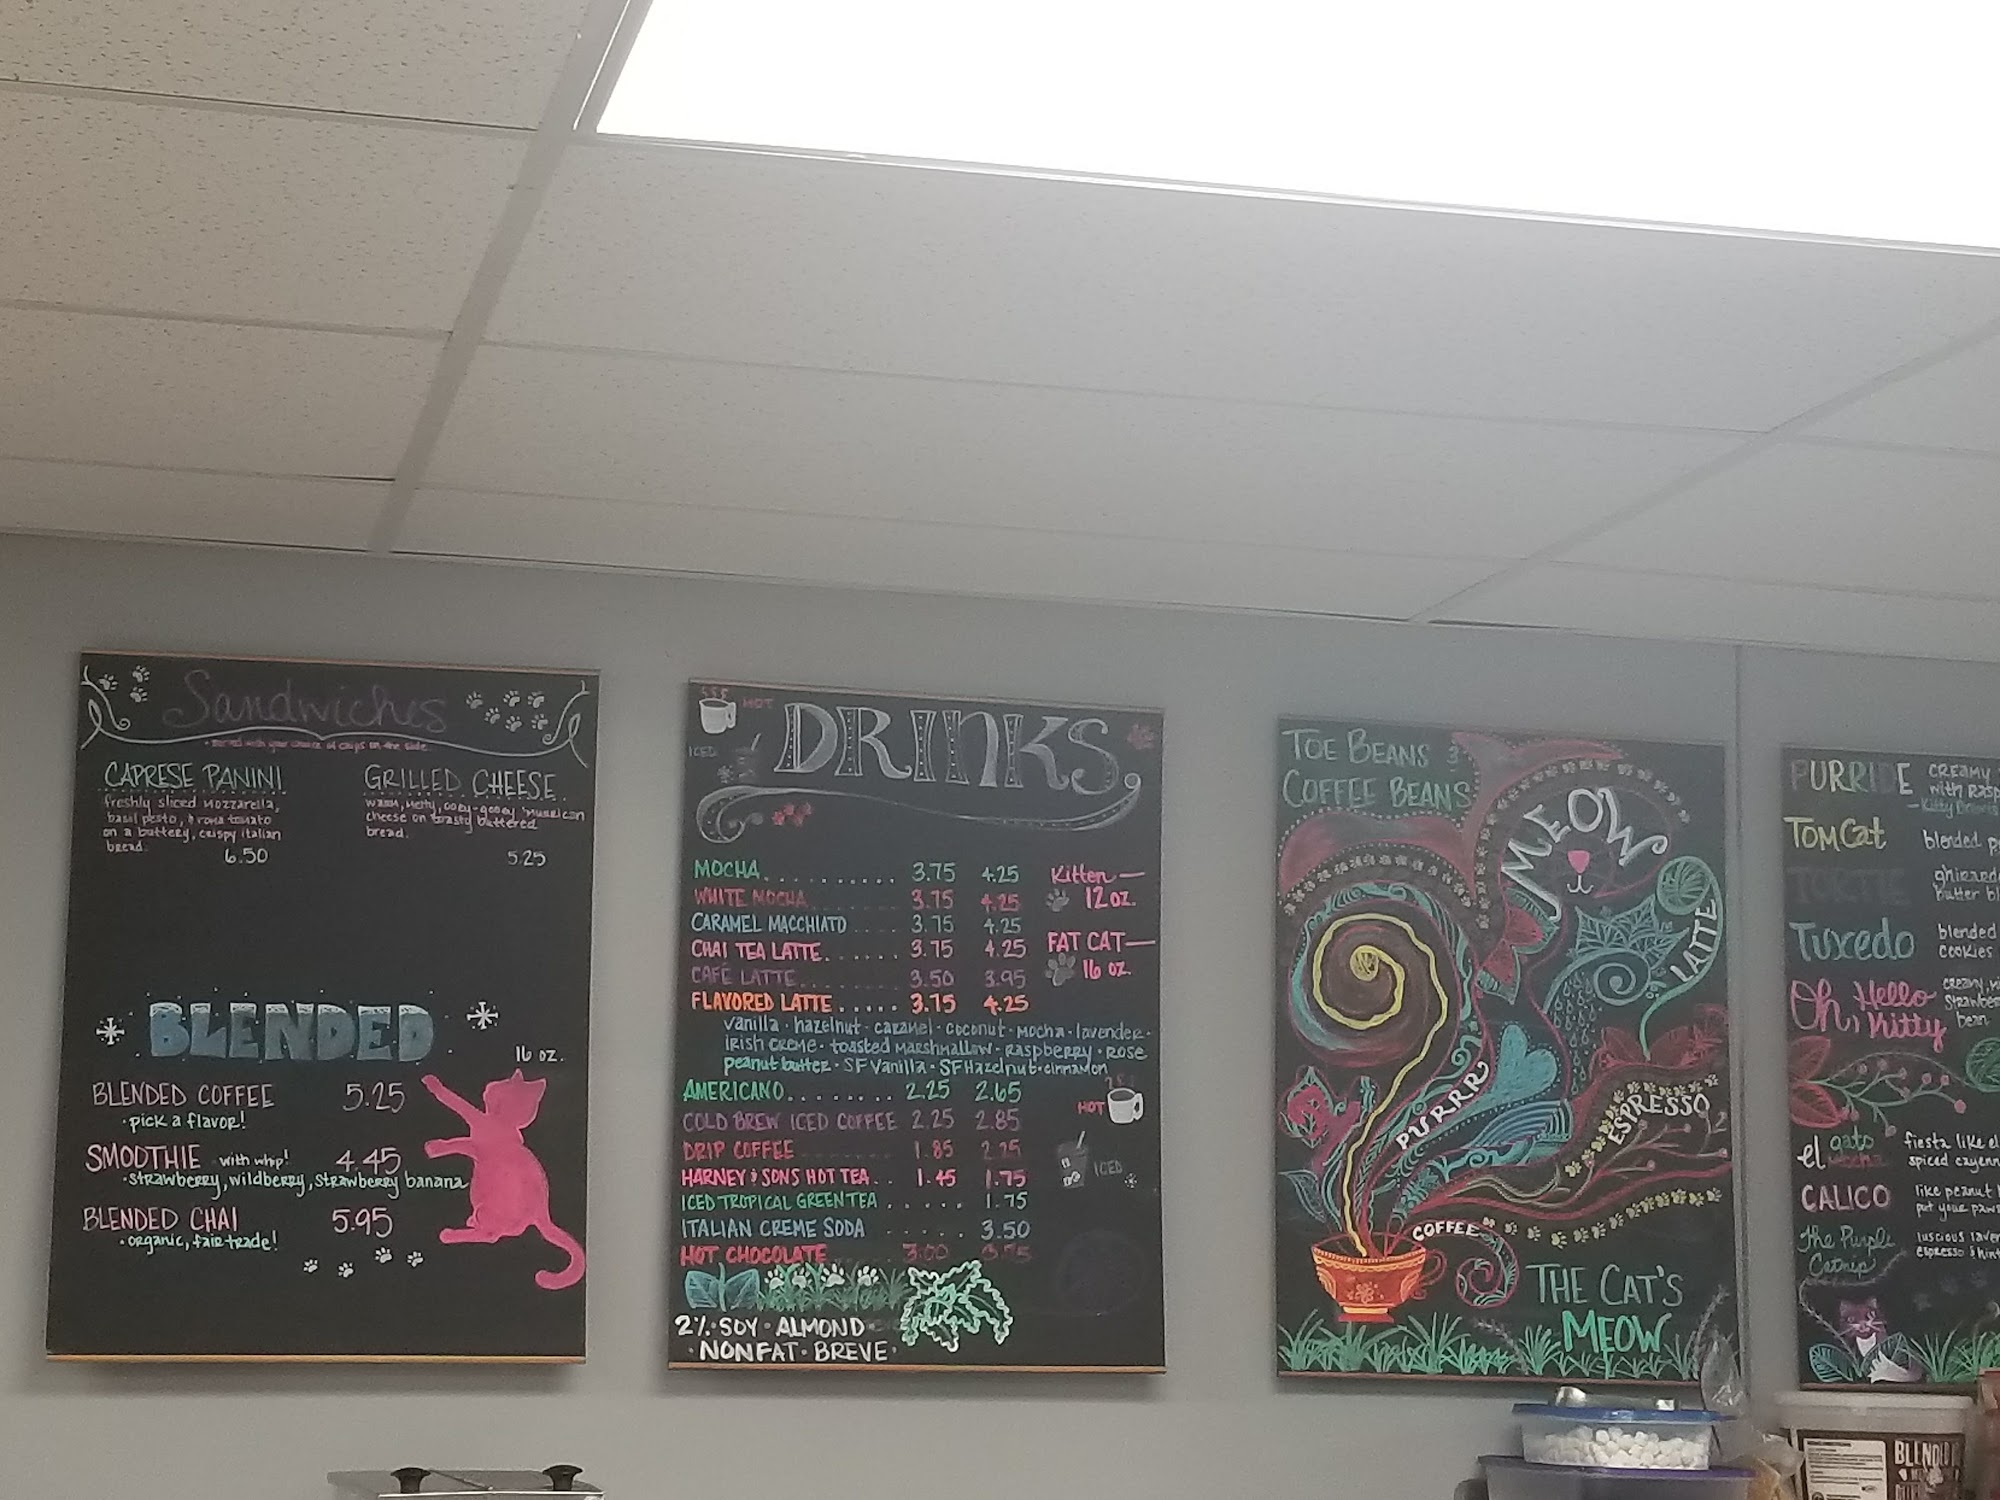 Sandwiches
served with your choice of chips on the side
CAPRESE PANINI
freshly sliced mozzarella,
basil pesto, & roma tomato
on a buttery, crispy italian
bread.
6.50
GRILLED CHEESE
warm, melty, ooey-gooey 'murrican
cheese on toasty buttered
bread.
5.25
BLENDED
16 oz.
BLENDED COFFEE 5.25
· pick a flavor!
SMOOTHIE with whip! 4.45
· strawberry, wildberry, strawberry banana
BLENDED CHAI 5.95
· organic, fair trade!
HOT
ICED
DRINKS
MOCHA.......... 3.75 4.25
WHITE MOCHA....... 3.75 4.25
CARAMEL MACCHIATO .... 3.75 4.25
CHAI TEA LATTE....... 3.75 4.25
CAFÉ LATTE........ 3.50 3.95
FLAVORED LATTE ..... 3.75 4.25
vanilla · hazelnut · caramel · coconut · mocha · lavender ·
irish creme · toasted marshmallow · raspberry · rose
peanut butter · SF vanilla · SF Hazelnut · cinnamon
AMERICANO........ 2.25 2.65
COLD BREW ICED COFFEE 2.25 2.85
DRIP COFFEE ........ 1.85 2.25
HARNEY & SONS HOT TEA.. 1.45 1.75
ICED TROPICAL GREEN TEA ...... 1.75
ITALIAN CREME SODA ...... 3.50
HOT CHOCOLATE 3.00 3.75
Kitten —
12 oz.
FAT CAT —
16 oz.
HOT
ICED
2% · SOY · ALMOND
· NONFAT · BREVE ·
TOE BEANS &
COFFEE BEANS
MEOW
LATTE
PURRR
ESPRESSO
COFFEE
THE CAT'S
MEOW
CREAMY
with rasp
TOMCat blended
butter bl
Tuxedo blended
cookies
Oh, Hello
Kitty
bean
el gato fiesta like el
spiced cayenn
CALICO like peanut
put your paws
The Purple luscious laven
Catnip espresso & hint